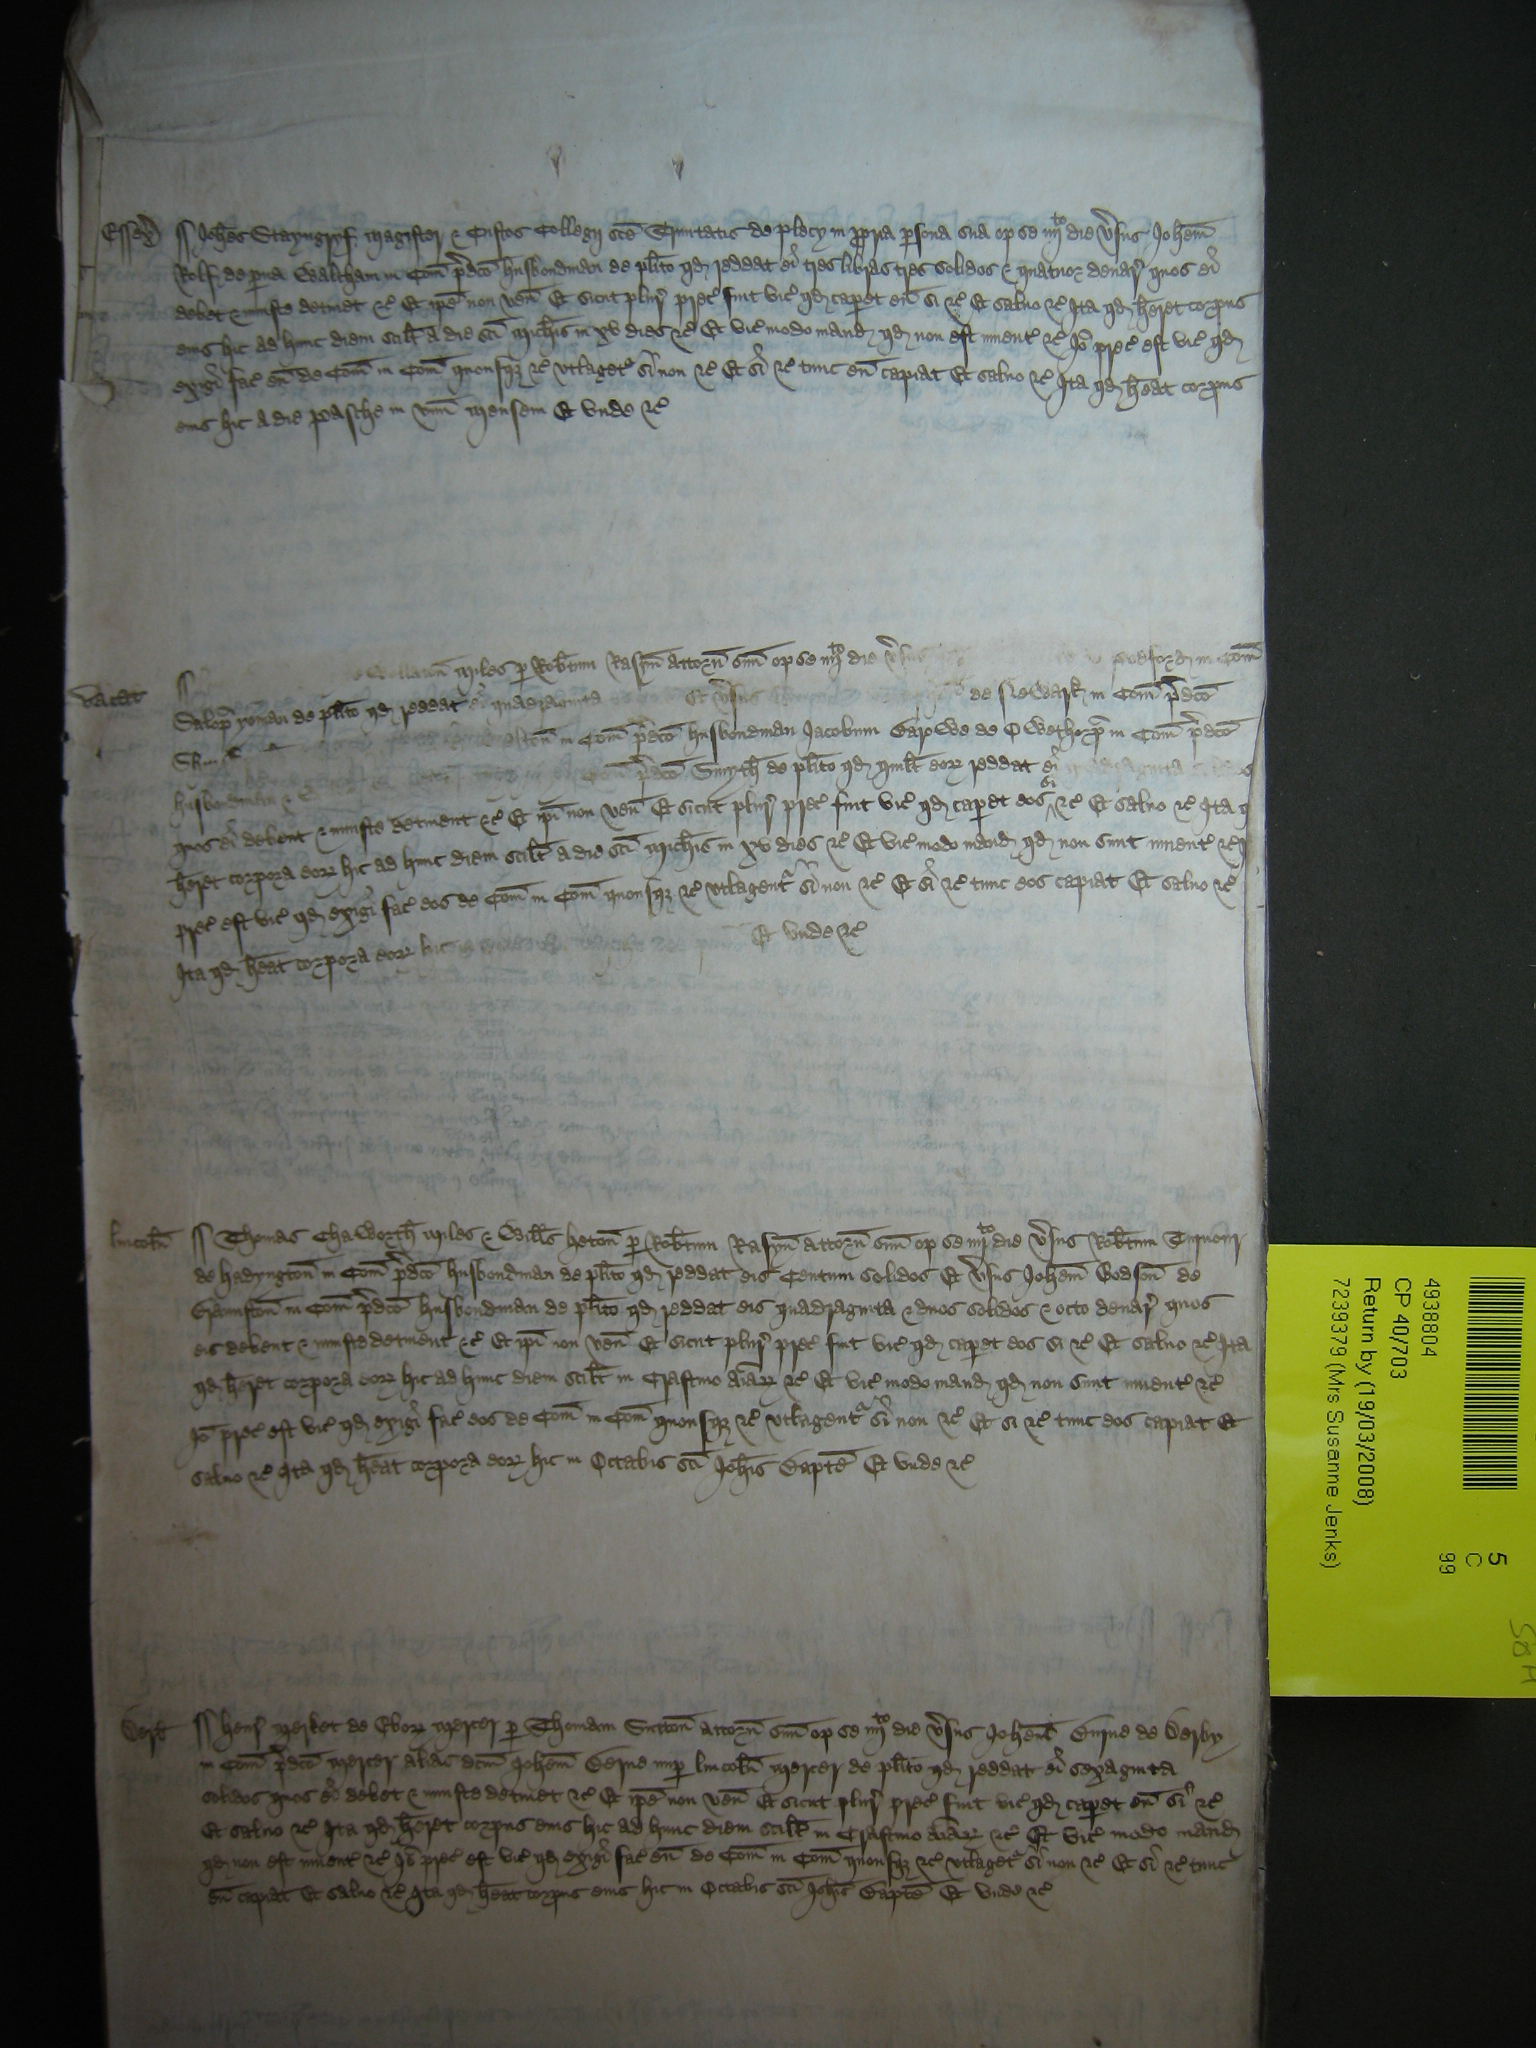 Essex̄ Joh̄es Stayngryf magister & Custos Collegij sc̄e Trinitatis de plecy in ppria psona sua op se iiijto die v̓sus Joh̄em
Rolf de pua Waltham in Com̄ p̄dc̄o husbondman de pl̄ito qd reddat ei tres libras tres solidos & quatuor denar̓ quos ei
debet & iniuste detinet &c̓ Et ip̄e non ven̄ Et sicut plur̓ prec̓ fuit vic̓ qd caperet eū si &c̓ Et saluo &c̓ Ita qd h̄eret corpus
eius hic ad hunc diem scil̄t a die sc̄i Mich̄is in xv dies &c̓ Et vic̓ modo mand qd non est inuent̓ &c̓ Jō prec̓ est vic̓ qd
exigi fac̓ eū de Com̄ in Com̄ quousqz &c̓ vtlaget̓ si non &c̓ Et si &c̓ tunc eū capiat Et saluo &c̓ Ita qd h̄eat corpus
eius hic a die pasche in vnū mensem Et vnde &c̓
Vacat miles p Rob̄tum Rasyn̄ attorn̄ suū op se iiijto die v̓sus in Com̄
Salop̄ yoman de pl̄ito qd reddat ei quadraginta Et v̓sus de in Com̄ p̄dc̄o
in Com̄ p̄dc̄o husbondman Jacobum de in Com̄ p̄dc̄o
husbondman & p̄dc̄o Smyth de pl̄ito qd quil̄t eor̄ reddat ei quadraginta solidos
quos ei debent & iniuste detinent &c̓ Et ip̄i non ven̄ Et sicut plur̓ prec̓ fuit vic̓ qd caperet eos si &c̓ Et saluo &c̓ Ita q
h̄eret corpora eor̄ hic ad hunc diem scil̄t a die sc̄i Mich̄is in xv dies &c̓ Et vic̓ modo mand qd non sunt inuent̓ &c̓
prec̓ est vic̓ qd exigi fac̓ eos de Com̄ in Com̄ quousqz &c̓ vtlagent̓ si non &c̓ Et si &c̓ tunc eos capiat Et saluo &c̓
Ita qd h̄eat corpora eor̄ hic Et vnde &c̓
lincoln̄ Thomas Chaworth miles & Will̄s heton̄ p Rob̄tum Rasyn̄ attorn̄ suū op se iiijto die v̓sus Rob̄tum Turnour
de hadyngton̄ in Com̄ p̄dc̄o husbondman de pl̄ito qd reddat eis Centum solidos Et v̓sus Joh̄em Godson̄ de
Graunston̄ in Com̄ p̄dc̄o husbondman de pl̄ito qd reddat eis quadraginta & duos solidos & octo denar̓ quos
eis debent & iniuste detinent &c̓ Et ip̄i non ven̄ Et sicut plur̓ prec̓ fuit vic̓ qd caperet eos si &c̓ Et saluo &c̓ Ita
qd h̄eret corpora eor̄ hic ad hunc diem scil̄t in Crastino Aīar̄ &c̓ Et vic̓ modo mand qd non sunt inuent̓ &c̓
Jō prec̓ est vic̓ qd exigi fac̓ eos de Com̄ in Com̄ quousqz &c̓ vtlagent̓ si non &c̓ Et si &c̓ tunc eos capiat Et
saluo &c̓ Ita qd h̄eat corpora eor̄ hic in Octabis sc̄i Joh̄is Bapt̄e Et vnde &c̓
Derb̄ Henr̓ Merket de Ebor̄ mercer p Thomam Sutton̄ attorn̄ suū op se iiijto die v̓sus Joh̄em Byrne de Derby
in Com̄ p̄dc̄o mercer alias dc̄m Joh̄em Berne nup lincoln̄ mercer de pl̄ito qd reddat ei sexaginta
solidos quos ei debet & iniuste detinet &c̓ Et ip̄e non ven̄ Et sicut plur̓ prec̓ fuit vic̓ qd caperet eū si &c̓
Et saluo &c̓ Ita qd h̄eret corpus eius hic ad hunc diem scil̄t in Crastino Aīar̄ &c̓ Et vic̓ modo mand
qd non est inuent̓ &c̓ Jō prec̓ est vic̓ qd exigi fac̓ eū de Com̄ in Com̄ quousqz &c̓ vtlaget̓ si non &c̓ Et si &c̓ tunc
eū capiat Et saluo &c̓ Ita qd h̄eat corpus eius hic in Octabis sc̄i Joh̄is Bapt̄e Et vnde &c̓
4938804
CP 40/703
Return by (19/03/2008)
7239379 (Mrs Susanne Jenks)
5
C
99
H85